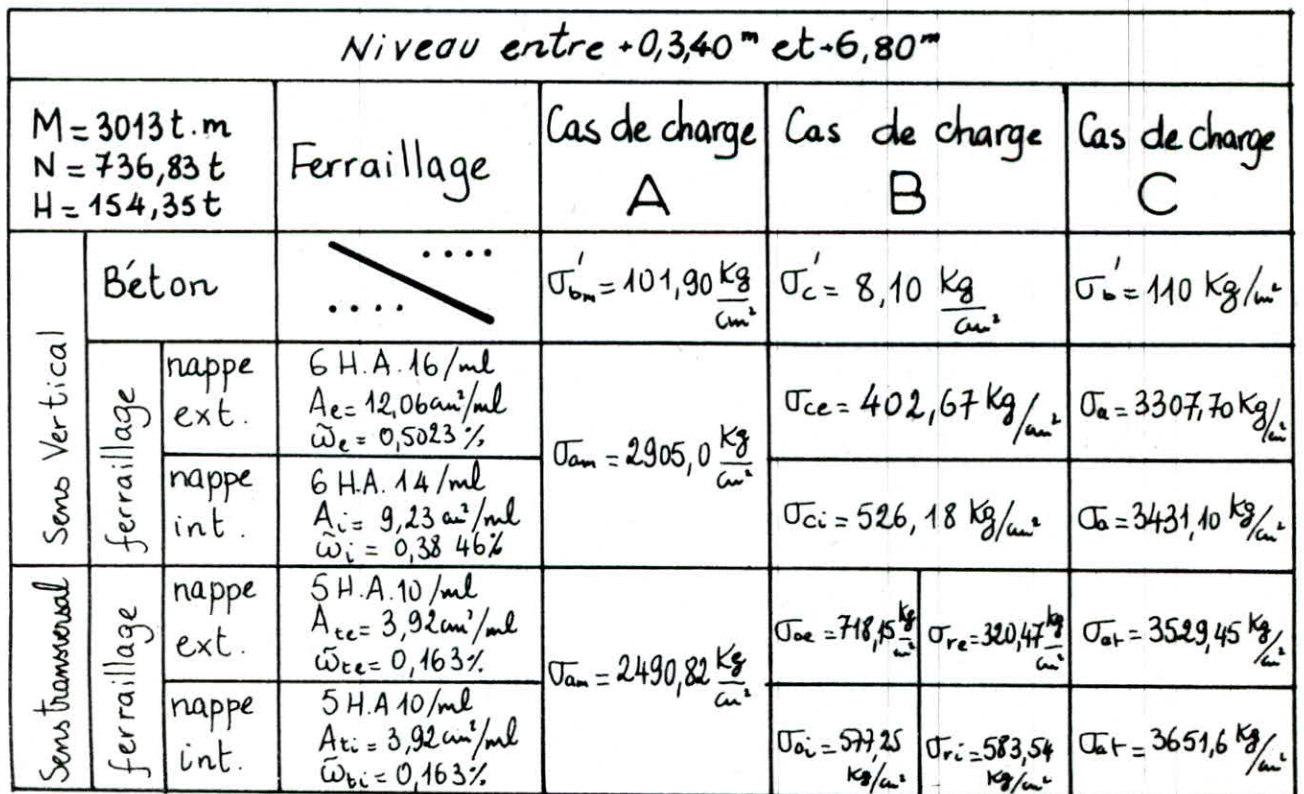 Niveau entre +0,3,40ᵐ et +6,80ᵐ
M = 3013 t.m
N = 736,83 t
H = 154,35 t
Ferraillage
Cas de charge
A
Cas de charge
B
Cas de charge
C
Sens Vertical
Béton
σ'bm = 101,90 Kg/cm²
σ'c = 8,10 Kg/cm²
σ'b = 110 Kg/cm²
ferraillage
nappe
ext.
6 H.A.16/ml
Ae = 12,06 cm²/ml
ω̃e = 0,5023 %
σam = 2905,0 Kg/cm²
σce = 402,67 Kg/cm²
σa = 3307,70 Kg/cm²
nappe
int.
6 H.A. 14/ml
Ai = 9,23 cm²/ml
ω̃i = 0,38 46%
σci = 526,18 Kg/cm²
σa = 3431,10 Kg/cm²
Sens transversal
ferraillage
nappe
ext.
5 H.A.10/ml
Ate = 3,92 cm²/ml
ω̃te = 0,163%
σam = 2490,82 Kg/cm²
σoe = 718,15 Kg/cm²
σre = 320,47 Kg/cm²
σat = 3529,45 Kg/cm²
nappe
int.
5 H.A 10/ml
Ati = 3,92 cm²/ml
ω̃ti = 0,163%
σoi = 577,25
Kg/cm²
σri = 583,54
Kg/cm²
σat = 3651,6 Kg/cm²